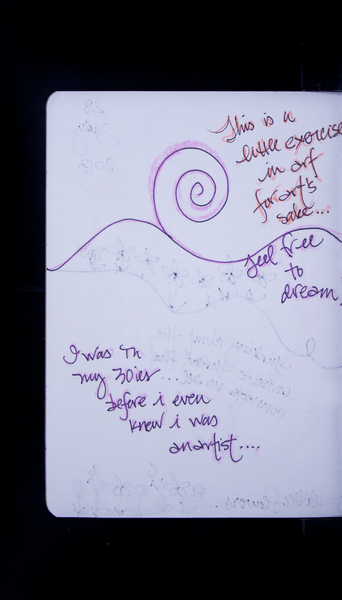 This is a
little exercise
in art
for art's
sake...
feel free
to
dream
I was in
my 30ies
before i even
knew i was
an artist....